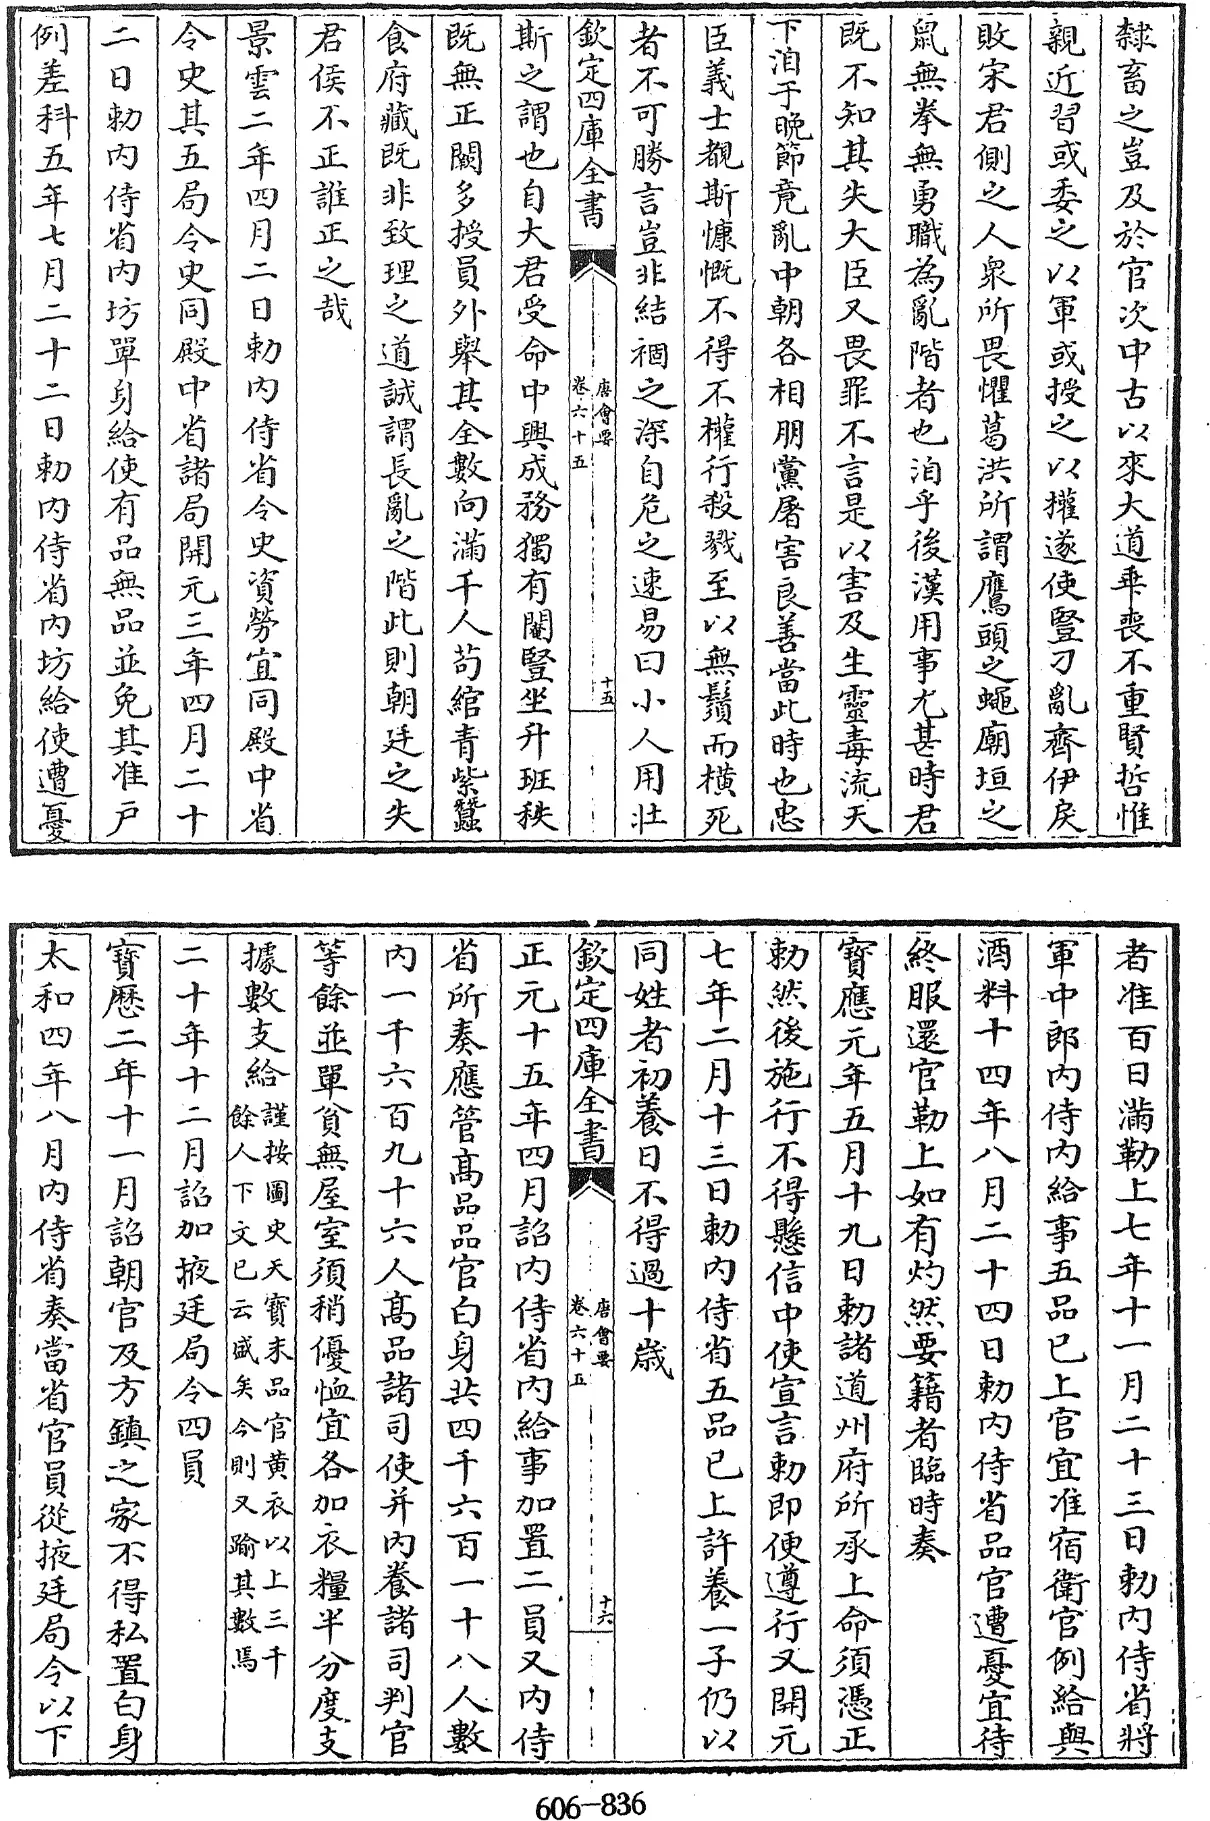 隸畜之豈及於官次中古以來大道乖喪不重賢哲惟
親近習或委之以軍或授之以權遂使豎刁亂齊伊戾
敗宋君側之人衆所畏懼葛洪所謂鷹頭之蠅廟垣之
鼠無拳無勇職為亂階者也洎乎後漢用事尤甚時君
既不知其失大臣又畏罪不言是以害及生靈毒流天
下洎于晚節竟亂中朝各相朋黨屠害良善當此時也忠
臣義士覩斯慷慨不得不權行殺戮至以無鬚而橫死
者不可勝言豈非結禍之深自危之速易曰小人用壯
欽定四庫全書
唐會要
卷六十五
十五
斯之謂也自大君受命中興成務獨有閹豎坐升班秩
既無正闕多授員外舉其全數向滿千人茍綰青紫蠶
食府藏既非致理之道誠謂長亂之階此則朝廷之失
君侯不正誰正之哉
景雲二年四月二日勅内侍省令史資勞宜同殿中省
令史其五局令史同殿中省諸局開元三年四月二十
二日勅内侍省内坊單身給使有品無品並免其准戶
例差科五年七月二十二日勅内侍省内坊給使遭憂
者准百日滿勒上七年十一月二十三日勅内侍省將
軍中郎内侍内給事五品已上官宜准宿衛官例給與
酒料十四年八月二十四日勅内侍省品官遭憂宜待
終服還官勒上如有灼然要籍者臨時奏
寶應元年五月十九日勅諸道州府所承上命須憑正
勅然後施行不得懸信中使宣言勅即便遵行又開元
七年二月十三日勅内侍省五品已上許養一子仍以
同姓者初養日不得過十歲
欽定四庫全書
唐會要
卷六十五
十六
正元十五年四月詔内侍省内給事加置二員又内侍
省所奏應管髙品品官白身共四千六百一十八人數
内一千六百九十六人髙品諸司使并内養諸司判官
等餘並單貧無屋室須稍優恤宜各加衣糧半分度支
據數支給謹按圖史天寶末品官黄衣以上三千
餘人下文已云盛矣今則又踰其數焉
二十年十二月詔加掖廷局令四員
寶歷二年十一月詔朝官及方鎮之家不得私置白身
太和四年八月内侍省奏當省官員從掖廷局令以下
606-836